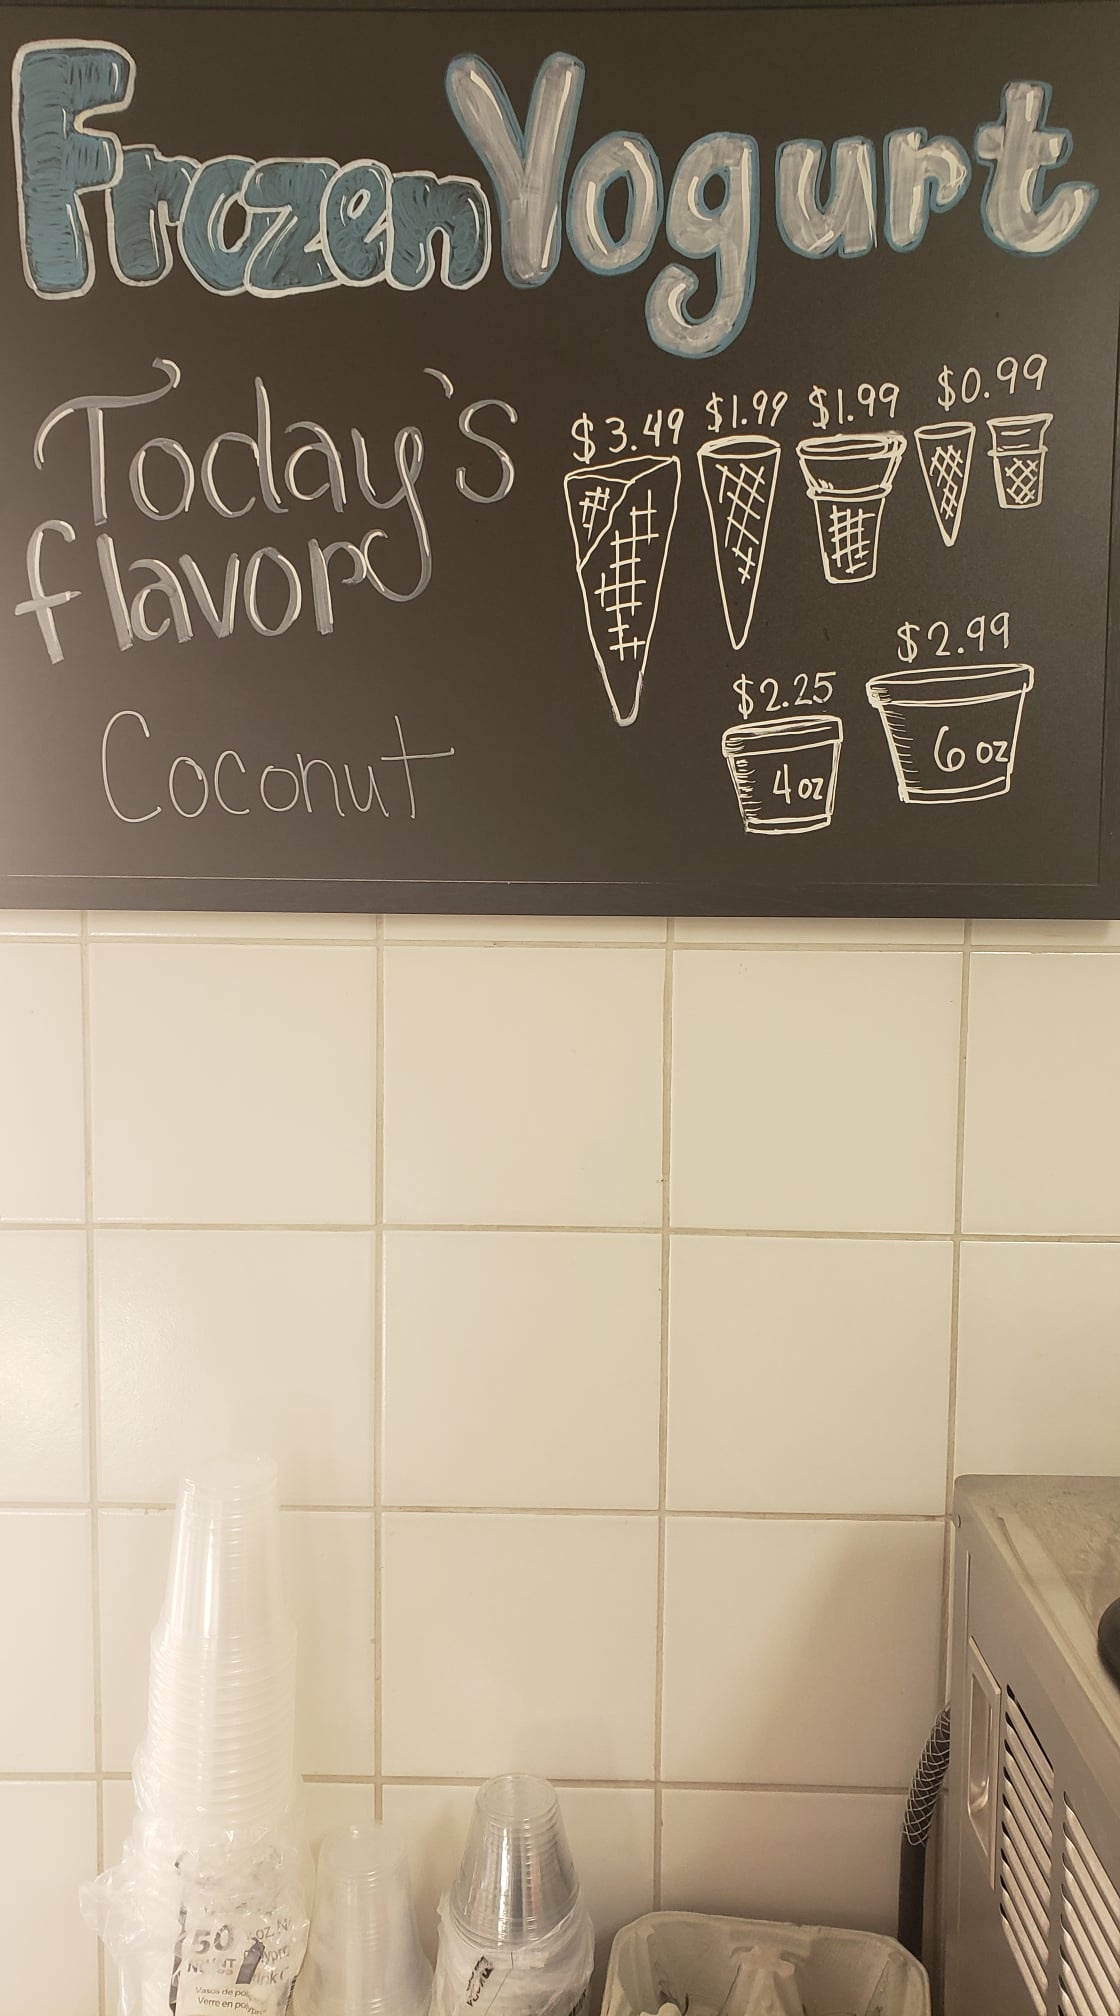 Frozen Yogurt
Today's
flavor
Coconut
$3.49 $1.99 $1.99 $0.99
$2.25 $2.99
4oz 6 oz
50
Vasos de
Verre en